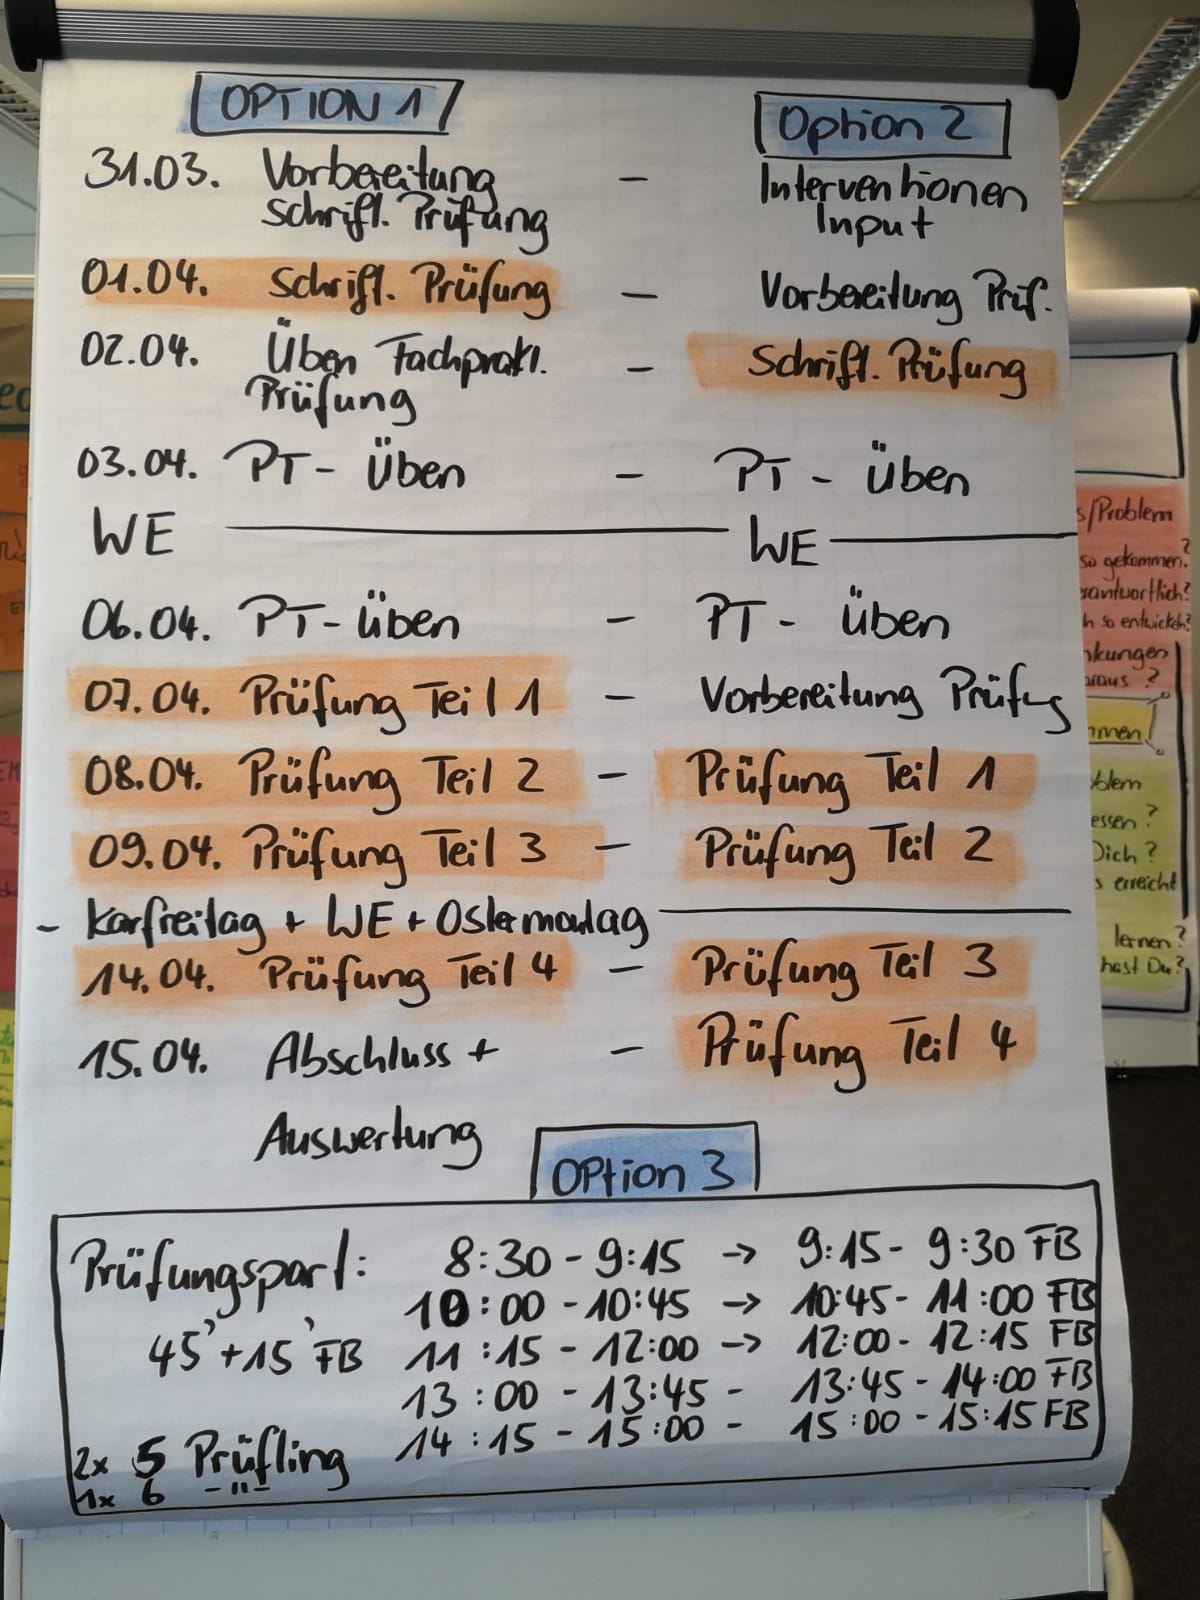 OPTION 1
Option 2
31.03. Vorbereitung schriftl. Prüfung - Interventionen Input
01.04. Schriftl. Prüfung - Vorbereitung Prüf.
02.04. Üben Fachprakt. Prüfung - Schriftl. Prüfung
03.04. PT - Üben - PT - Üben
WE WE
06.04. PT - Üben - PT - Üben
07.04. Prüfung Teil 1 - Vorbereitung Prüfg
08.04. Prüfung Teil 2 - Prüfung Teil 1
09.04. Prüfung Teil 3 - Prüfung Teil 2
- Karfreitag + WE + Ostermontag
14.04. Prüfung Teil 4 - Prüfung Teil 3
15.04. Abschluss + - Prüfung Teil 4
Auswertung
Option 3
Prüfungspart: 8:30 - 9:15 → 9:15 - 9:30 FB
10:00 - 10:45 → 10:45 - 11:00 FB
45' + 15' FB 11:15 - 12:00 → 12:00 - 12:15 FB
13:00 - 13:45 - 13:45 - 14:00 FB
14:15 - 15:00 - 15:00 - 15:15 FB
2x 5 Prüfling
1x 6 -"-
s/Problem
so gekommen?
rantwortlich?
h so entwickelt?
nkungen
raus?
mmen!
blem
essen?
Dich?
s erreicht
lernen?
hast Du?